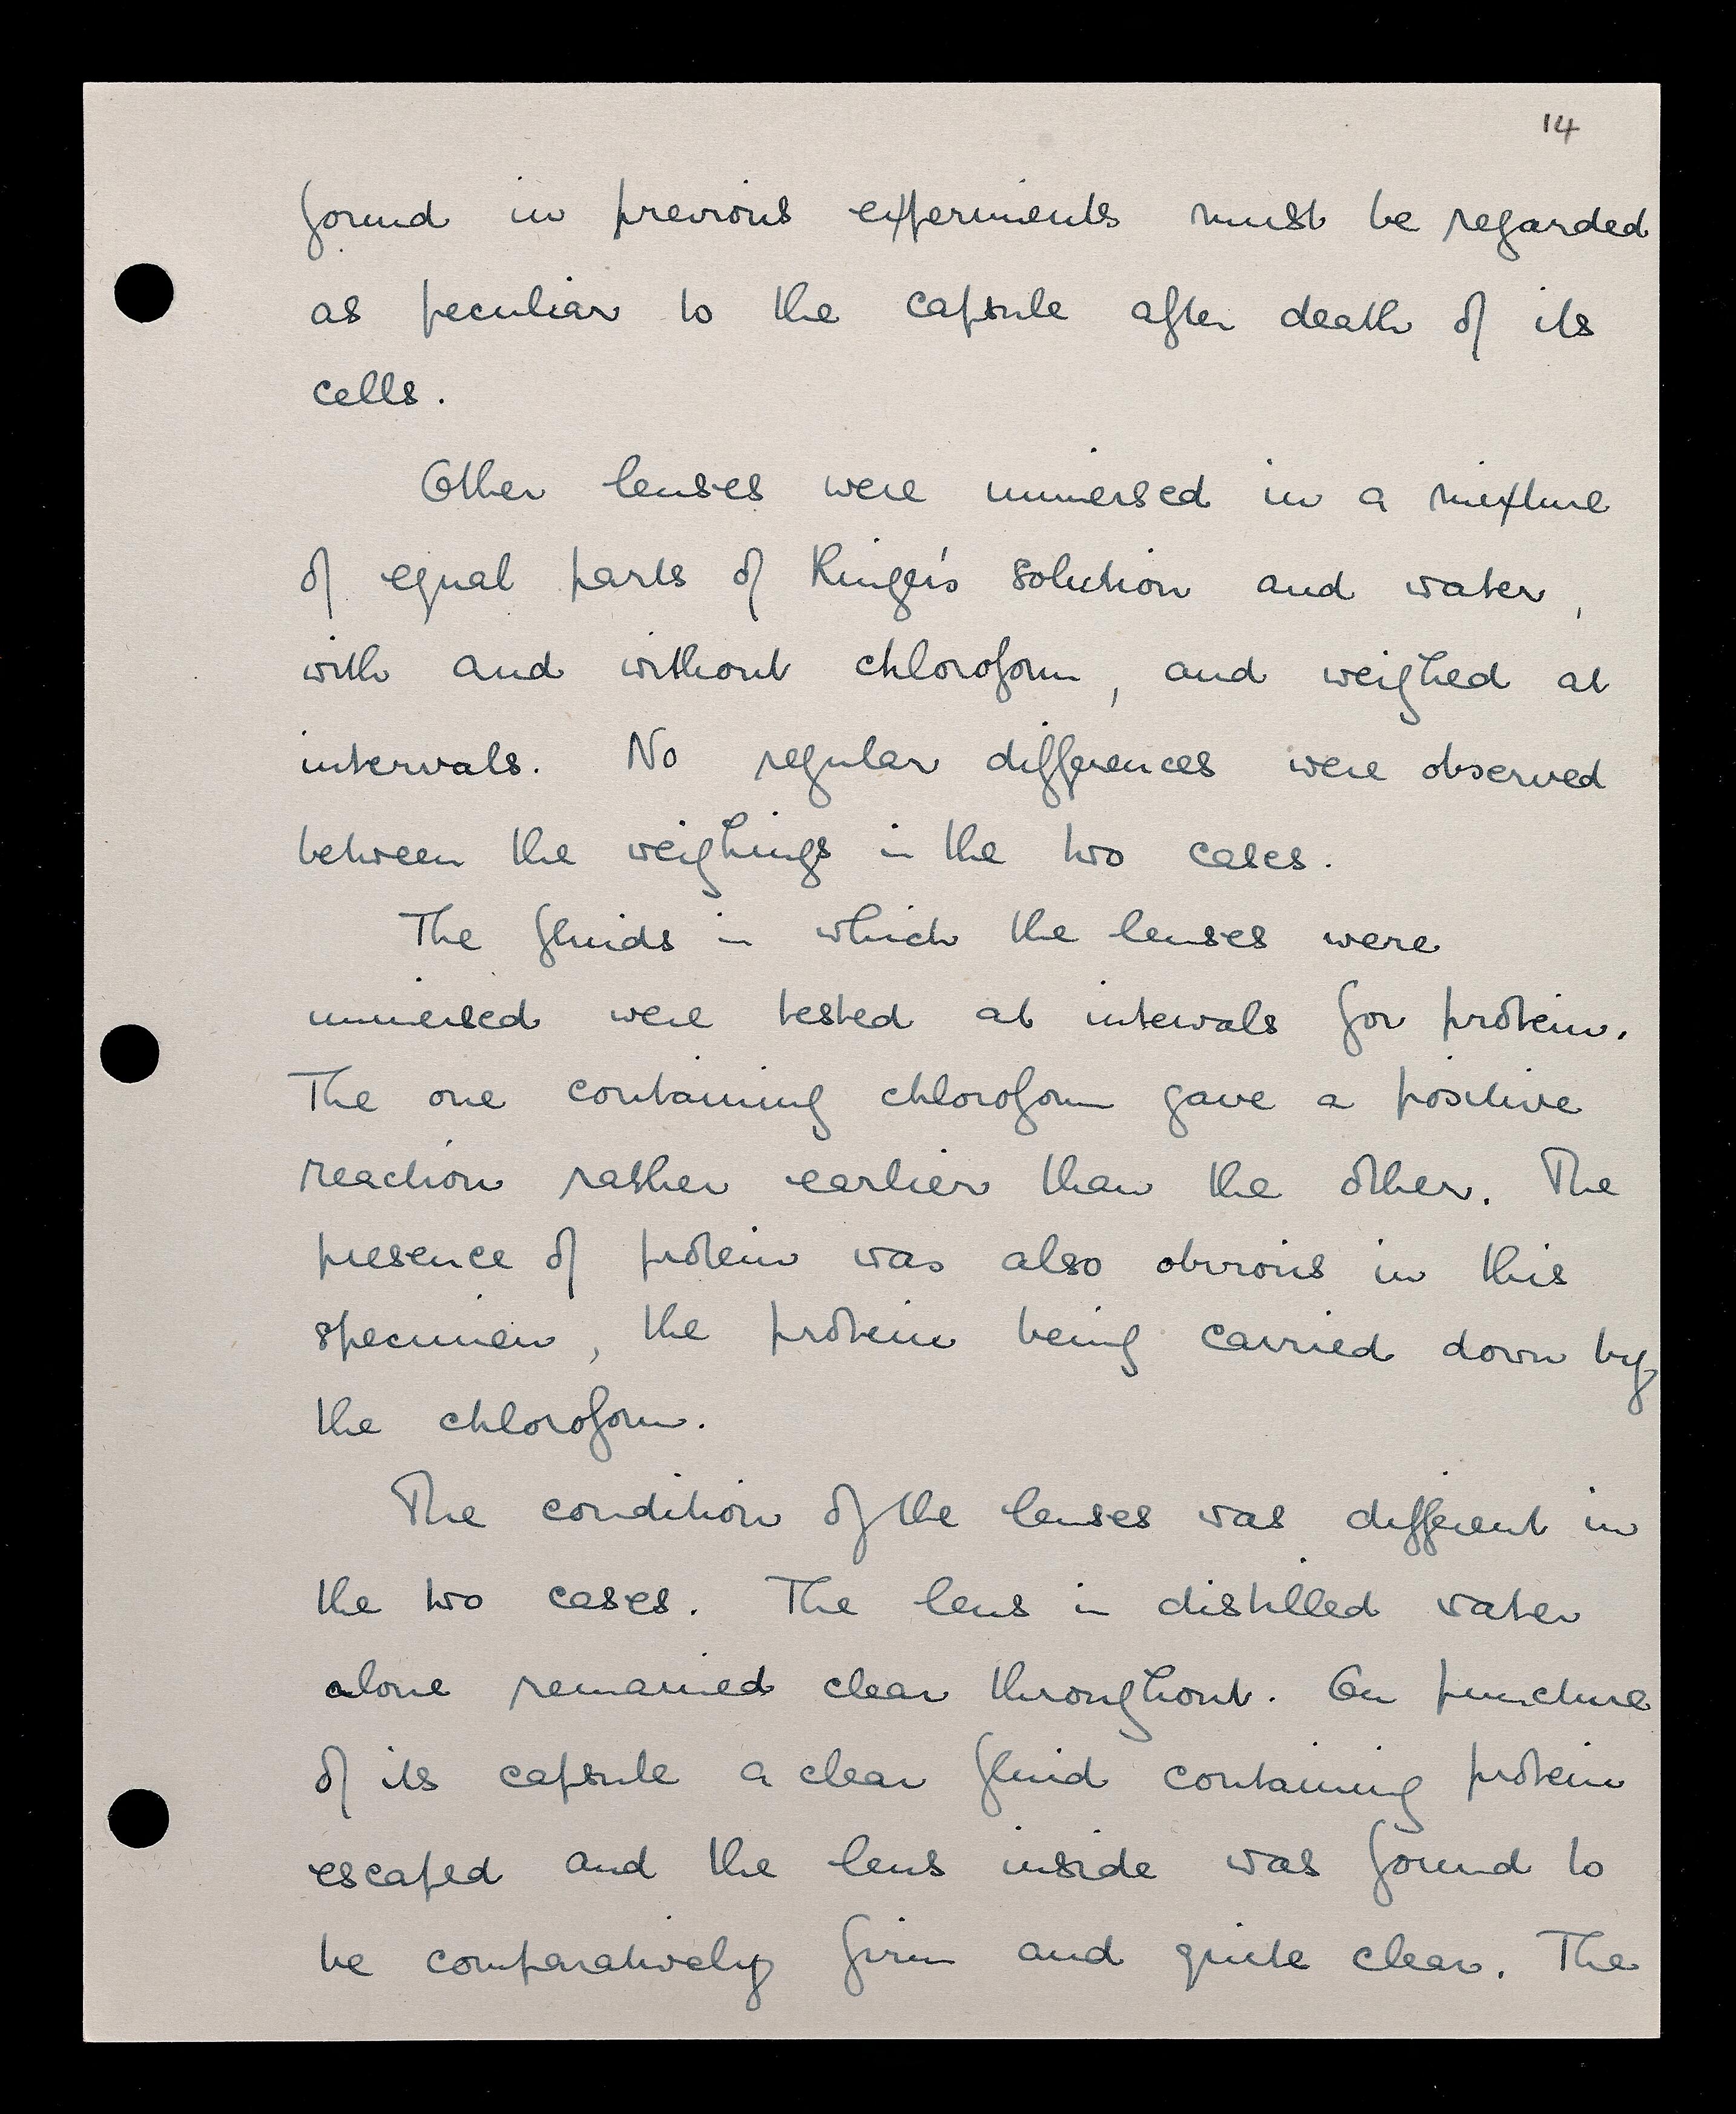 14
found in previous experiments must be regarded
as peculiar to the capsule after death of its
cells.
Other lenses were immersed in a mixture
of equal parts of Ringer's solution and water,
with and without chloroform, and weighed at
intervals. No regular differences were observed
between the weighings in the two cases.
The fluids in which the lenses were
immersed were tested at intervals for protein.
The one containing chloroform gave a positive
reaction rather earlier than the other. The
presence of protein was also obvious in this
specimen, the protein being carried down by
the chloroform.
The condition of the lenses was different in
the two cases. The lens in distilled water
alone remained clear throughout. On puncture
of its capsule a clear fluid containing protein
escaped and the lens inside was found to
be comparatively firm and quite clear. The